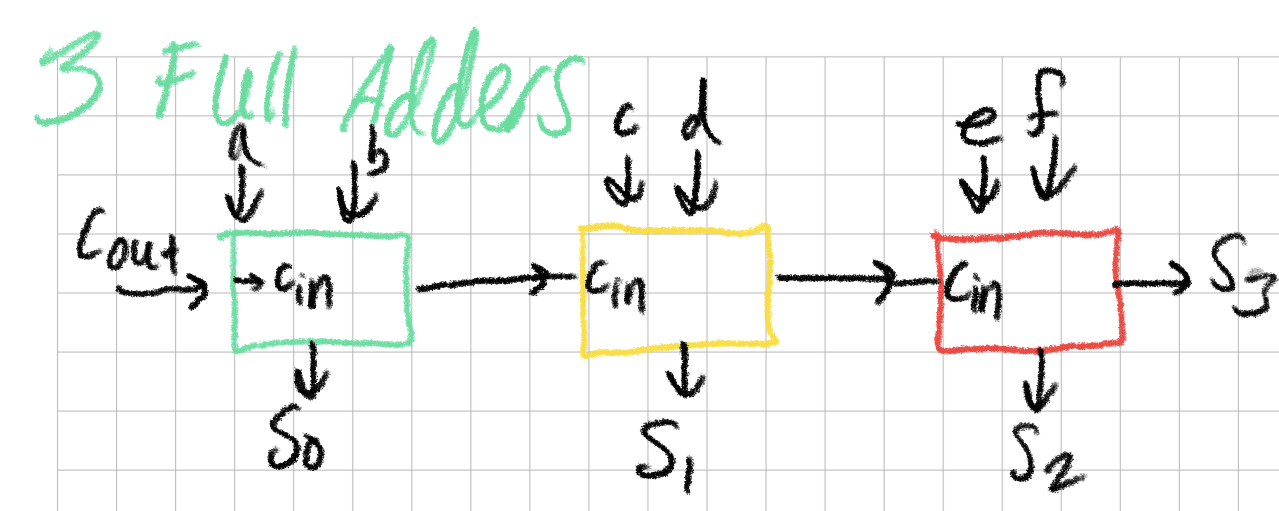 3 Full Adders
a b c d e f
Cout Cin Cin Cin S3
S0 S1 S2